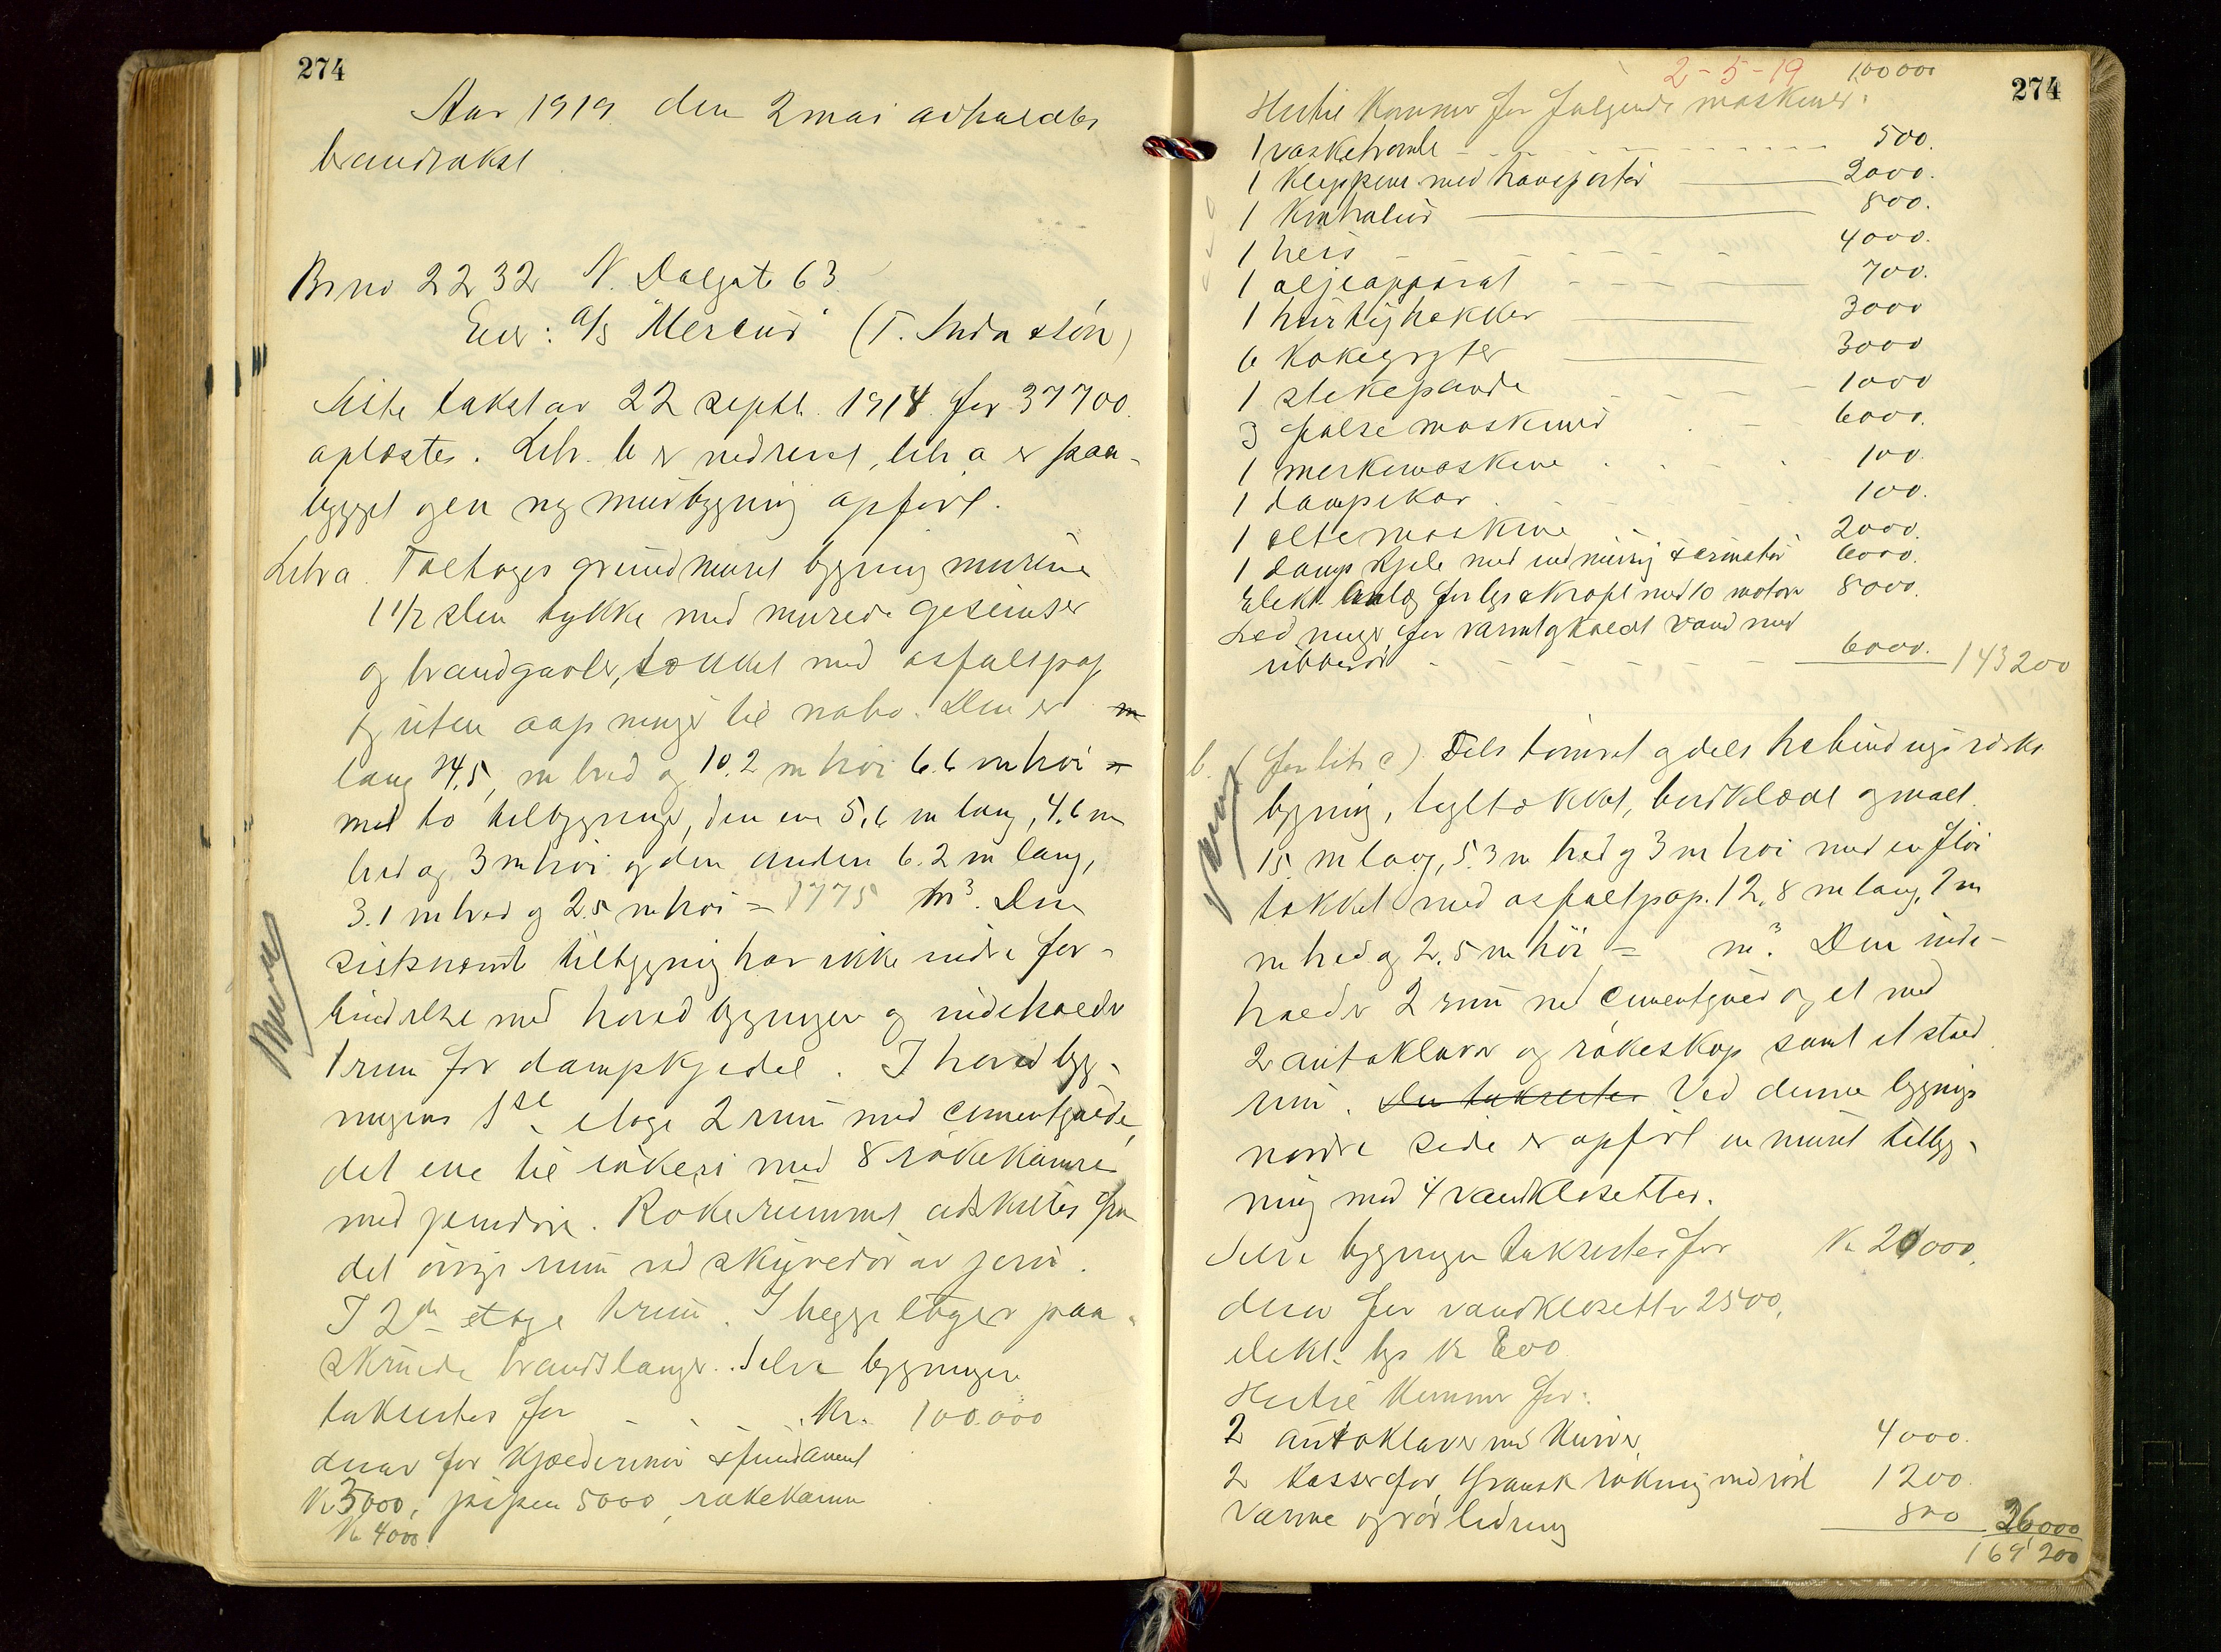 274
Aar 1919 den 2 mai avholdtes
brandtakst
Br no 2232 N. Dalgate 63
Eier: A/S "Mercur" (T. & Søn)
Siste takst av 22 septbr. 1914 for 37700.
oplæstes. Litr. b er nedrevet, litr. a er paa-
bygget og en ny murbygning opført.
Litr a. Toetages grundmuret bygning murene
1 1/2 sten tykke med murede gesimser
og brandgavler, tækket med asfaltpap
og uten aapninger til nabo. Den er m
lang 24,5, m bred og 10.2 m høi 6.6 m høi =
med to tilbygninger, den ene 5,6 m lang, 4,6 m
bred og 3 m høi og den anden 6.2 m lang,
3.1 m bred og 2.5 m høi = 1775 m³. Den
sistnævnte tilbygning har ikke indre for-
bindelse med hovedbygningen og indeholder
1 rum for dampkjedel. I hovedbyg-
ningens 1ste etage 2 rum med cementgulve,
det ene til røkeri med 8 røkekamre
med jerndøre. Røkerummet adskilles fra
det øvrige rum ved skyvedør av jern.
I 2den etage 1 rum. I begge etager paa-
skruede brandslanger. Selve bygningen
taksertes for - - - Kr. 100.000
derav for kjælderrum & fundament
Kr 3000, pipen 5000, røkekamre
Kr 4000.
2-5-19 100000
274
Hertil kommer for følgende maskiner:
1 vasketromle 500.
1 klippeme. med transportør 2000.
1 800.
1 heis 4000.
1 oljeapparat 700.
1 hurtighakker 3000
6 kokegryter 3000
1 stekepande 1000
3 false maskiner 6000.
1 merkemaskine 100.
1 dampkar 100.
1 elte maskine 2000.
1 damp kjele med indmuring & armatur 6000.
Elekt. Anlæg for lys & kraft med 10 motorer 8000.
Ledninger for varmt og koldt vand med
ribberør 6000. 143200
b. (før litr c) Dels tømret og dels utbindingsverks
bygning, tegltækket, bordklædt og malt.
15 m lang, 5.3 m bred og 3 m høi med en fløi
tækket med asfaltpap. 12,8 m lang, 7 m
m bred og 2,5 m høi = m³. Den inde-
holder 2 rum med cementgulv og et med
2 autoklaver og røkeskap samt et stort
rum. Den taksertes Ved denne bygnings
nordre side er opført en muret tilbyg-
ning med 4 vandklosetter.
Selve bygningen taksertes for Kr 20000.
derav for vandklosetter 2500,
elekt. lys Kr 600
Hertil kommer for:
2 autoklaver med kurver 4000.
2 kasser for fransk røkning med rist 1200.
Varme og rørledning 800 26000
169200